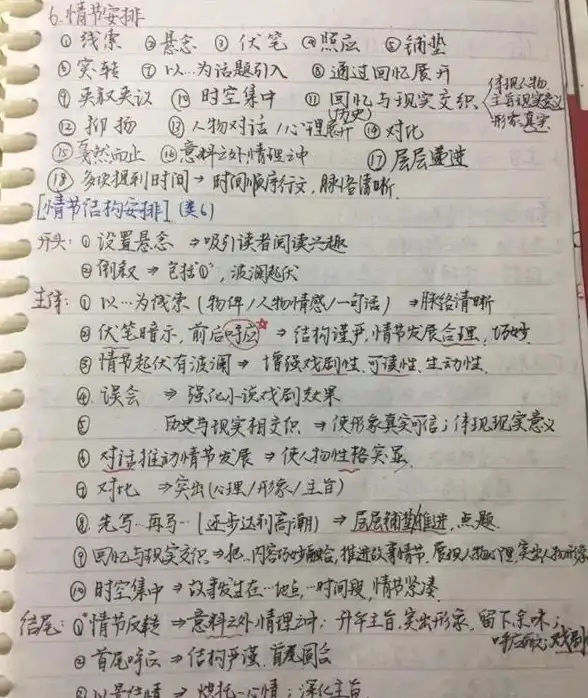 6. 情节安排
① 线索 ② 悬念 ③ 伏笔 ④ 照应 ⑤ 铺垫
⑥ 突转 ⑦ 以…为话题引入 ⑧ 通过回忆展开
⑨ 夹叙夹议 ⑩ 时空集中 ⑪ 回忆与现实交织 (历史) 体现人物 主旨现实意义 形象真实
⑫ 抑扬 ⑬ 人物对话/心理展开 ⑭ 对比
⑮ 戛然而止 ⑯ 意料之外情理之中 ⑰ 层层递进
⑱ 多次提到时间 → 时间顺序行文,脉络清晰.
[情节结构安排] (类6)
开头: ① 设置悬念 ⇒ 吸引读者阅读兴趣
② 倒叙 ⇒ 包括"①", 波澜起伏
主体: ① 以…为线索 (物件/人物情感/一句话) ⇒ 脉络清晰
② 伏笔暗示, 前后呼应 ⇒ 结构谨严,情节发展合理, 巧妙
③ 情节起伏有波澜 ⇒ 增强戏剧性、可读性、生动性.
④ 误会 ⇒ 强化小说戏剧效果
⑤ 历史与现实相交织 ⇒ 使形象真实可信; 体现现实意义
⑥ 对话推动情节发展 ⇒ 使人物性格突显.
⑦ 对比 ⇒ 突出(心理/形象/主旨)
⑧ 先写…再写… (逐步达到高潮) ⇒ 层层铺垫推进, 点题.
⑨ 回忆与现实交织 ⇒ 把…内容巧妙融合, 推进故事情节, 展现人物心理, 突出人物形象
⑩ 时空集中 ⇒ 故事发生在…地点, …时间段, 情节紧凑.
结尾: ① 情节反转 ⇒ 意料之外情理之中; 升华主旨, 突出形象, 留下余味; 呼应前文; 戏剧
② 首尾呼应 ⇒ 结构严谨, 首尾圆合
③ 以景结情 ⇒ 烘托…心情; 深化主旨